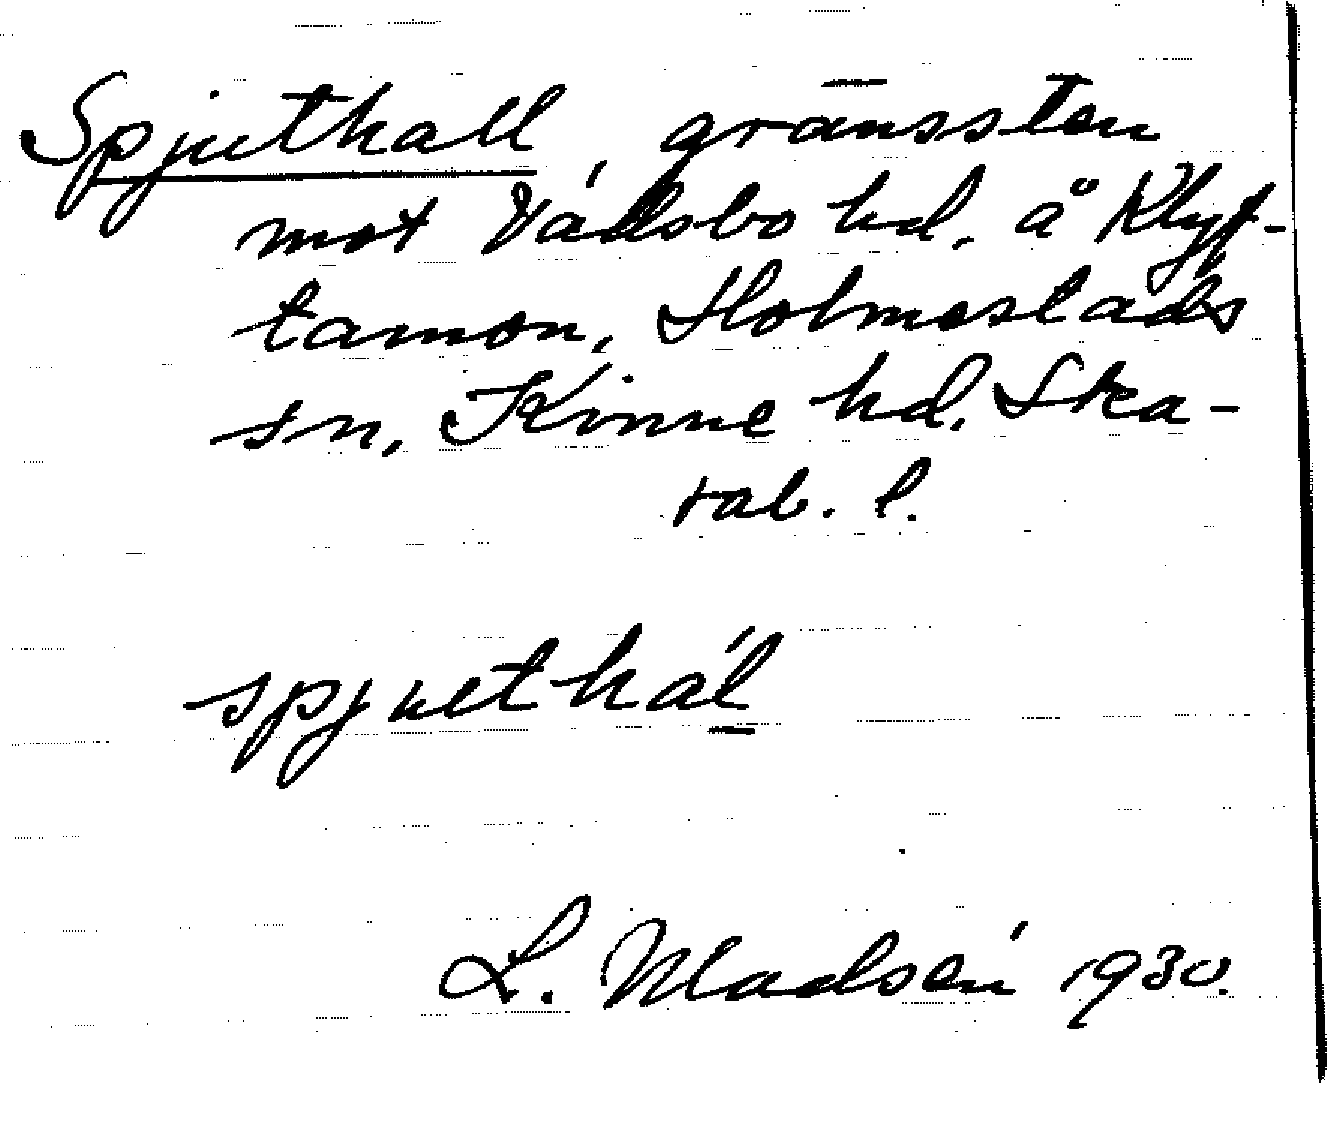 Spjuthall, gränssten
mot Vadsbo hd. å Klyf-
tamon, Holmestads
sn, Kinne hd. Ska-
rab. l.
spjuthál
L. Madsén 1930.